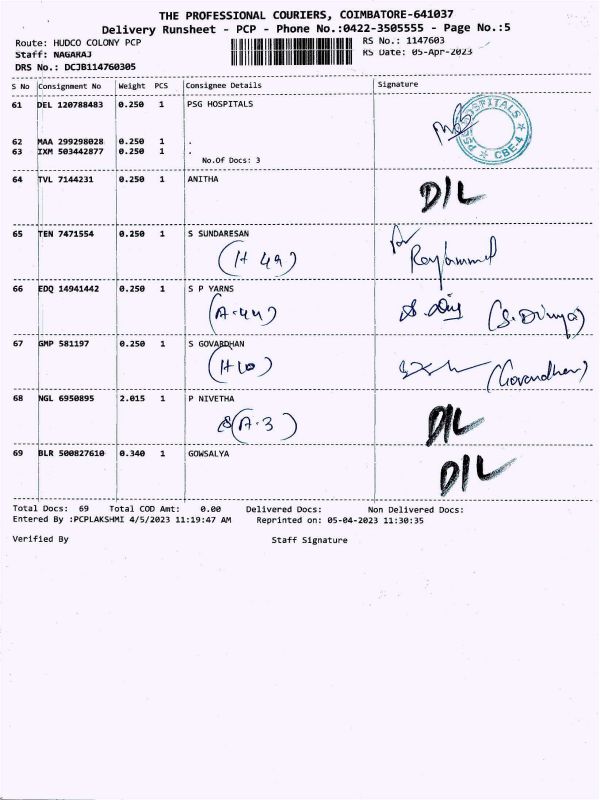 THE PROFESSIONAL COURIERS, COIMBATORE-641037
Delivery Runsheet - PCP - Phone No.:0422-3505555 - Page No.:5
Route: HUDCO COLONY PCP
RS No.: 1147603
Staff: NAGARAJ
RS Date: 05-Apr-2023
DRS No.: DCJB114760305
S No Consignment No Weight PCS Consignee Details Signature
61 DEL 120788483 0.250 1 PSG HOSPITALS
PSG HOSPITALS ★ CBE-4 ★
62 MAA 299298028 0.250 1 .
63 IXM 503442877 0.250 1 .
No.Of Docs: 3
64 TVL 7144231 0.250 1 ANITHA
D/L
65 TEN 7471554 0.250 1 S SUNDARESAN
(H 49)
for
66 EDQ 14941442 0.250 1 S P YARNS
(A-44) (S. Divya)
67 GMP 581197 0.250 1 S GOVARDHAN
(H 10) (Govardhan)
68 NGL 6950895 2.015 1 P NIVETHA
(A-3) D/L
69 BLR 500827610 0.340 1 GOWSALYA
D/L
Total Docs: 69 Total COD Amt: 0.00 Delivered Docs: Non Delivered Docs:
Entered By :PCPLAKSHMI 4/5/2023 11:19:47 AM Reprinted on: 05-04-2023 11:30:35
Verified By Staff Signature